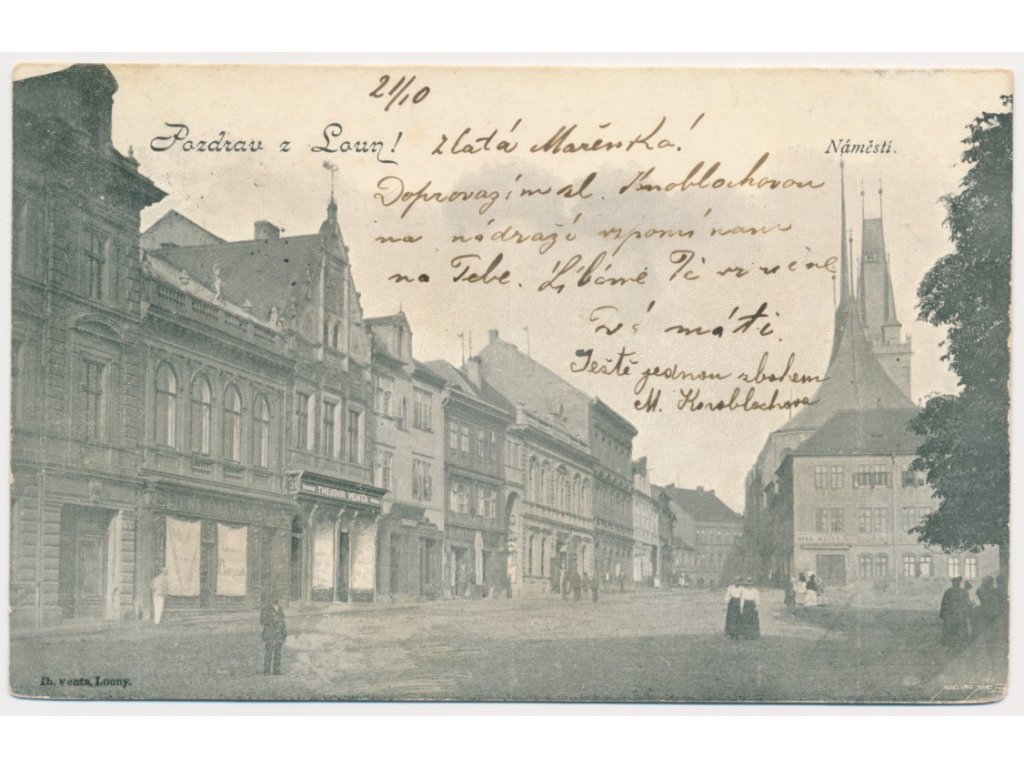 21/10
Pozdrav z Loun!
Zlatá Mařenko!
Náměstí.
Doprovazím sl. Knoblochovou
na nádraží vzpomínám
na Tebe. Líbáme Tě vroucně
Tvá máti.
Ještě jednou zbohem
M. Knoblochova
THEODOR VENTA
Th. Venta, Louny.